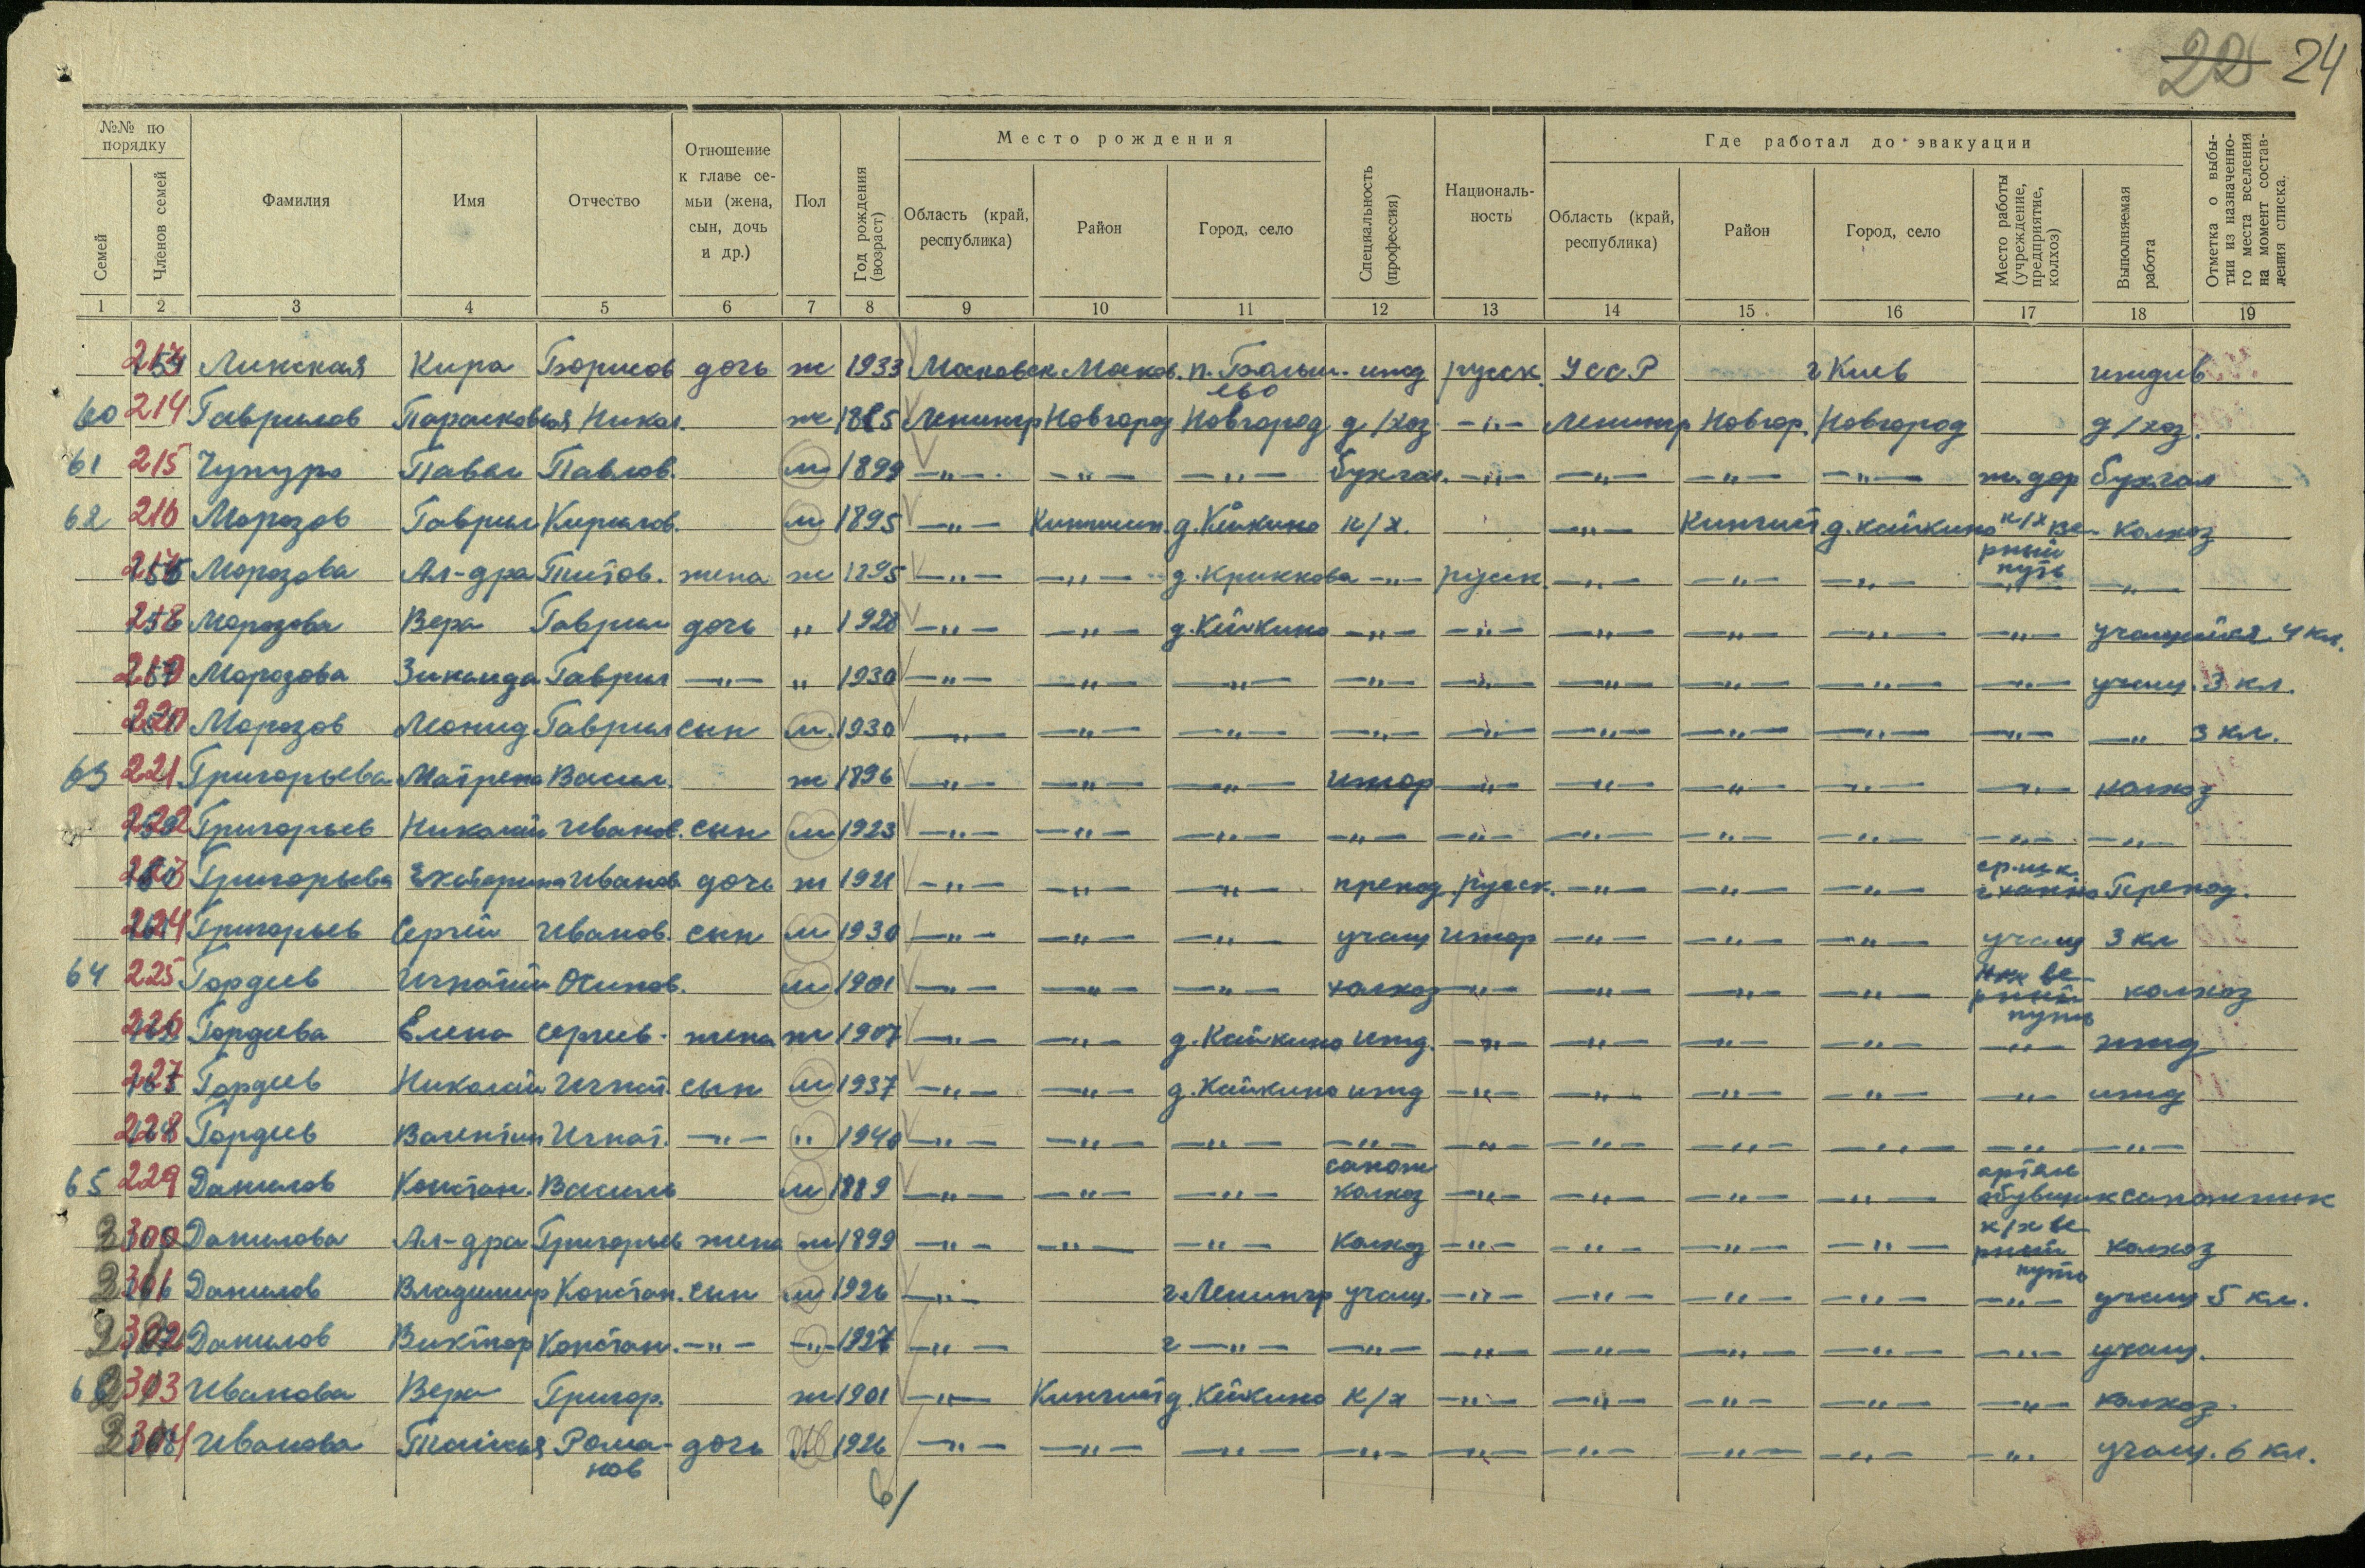 22 24
№№ по порядку Фамилия Имя Отчество Отношение к главе семьи (жена, сын, дочь и др.) Пол Год рождения (возраст) Место рождения Специальность (профессия) Национальность Где работал до эвакуации Отметка о выбытии из назначенного места вселения на момент составления списка.
Семей Членов семей Область (край, республика) Район Город, село Область (край, республика) Район Город, село Место работы (учреждение, предприятие, колхоз) Выполняемая работа
1 2 3 4 5 6 7 8 9 10 11 12 13 14 15 16 17 18 19
Линская Кира Борисов дочь ж 1933 Московск Москов. п. ижд русск. УССР г Киев иждив
60 214 Гаврилов Парасковья Никол. ж Ленингр Новгород Новгород д/хоз -"- Ленингр Новгор. Новгород д/хоз.
61 215 Чупуро Павел Павлов. м 1899 -"- -"- -"- бухгал. -"- -"- -"- -"- ж. дор бухгал
62 216 Морозов Гаврил Кирилов. м 1895 -"- Кингисеп. д. Кейкино к/х. -"- Кингисеп д. Кайкино к/х Верный путь колхоз
Морозова Ал-дра Титов. жена ж 1895 -"- -"- д. Криккова -"- русск. -"- -"- -"- -"- -"-
218 Морозова Вера Гаврил дочь " 1928 -"- -"- д. Кейкино -"- -"- -"- -"- -"- -"- учащийся 4 кл.
219 Морозова Зинаида Гаврил -"- " 1930 -"- -"- -"- -"- -"- -"- -"- -"- -"- учащ. 3 кл.
220 Морозов Леонид Гаврил сын м. 1930 -"- -"- -"- -"- -"- -"- -"- -"- -"- -"- 3 кл.
63 221 Григорьева Матрена Васил. ж 1896 -"- -"- -"- ижор -"- -"- -"- -"- -"- колхоз
222 Григорьев Николай Иванов. сын м 1923 -"- -"- -"- -"- -"- -"- -"- -"- -"- -"-
223 Григорьева Екатерина Иванов. дочь ж 1921 -"- -"- -"- препод русск. -"- -"- -"- ср. шк. Препод.
224 Григорьев Сергей Иванов. сын м 1930 -"- -"- -"- учащ ижор -"- -"- -"- учащ 3 кл
64 225 Гордеев Игнатий Осипов. м 1901 -"- -"- -"- колхоз -"- -"- -"- -"- Верный путь колхоз
226 Гордеева Елена Сергеев. жена ж 1907 -"- -"- д. Кайкино ижд. -"- -"- -"- -"- -"- ижд
227 Гордеев Николай Игнат. сын м 1937 -"- -"- д. Кайкино ижд -"- -"- -"- -"- -"- ижд
228 Гордеев Валентин Игнат. -"- " 1940 -"- -"- -"- -"- -"- -"- -"- -"- -"- -"-
65 229 Данилов Констан. Василь м 1889 -"- -"- -"- сапож колхоз -"- -"- -"- -"- артель обувщик сапожник
300 Данилова Ал-дра Григорьев жена ж 1899 -"- -"- -"- колхоз -"- -"- -"- -"- к/х Верный путь колхоз
301 Данилов Владимир Констан. сын м 1926 -"- г Ленингр учащ. -"- -"- -"- -"- -"- учащ 5 кл.
302 Данилов Виктор Констан. -"- -"- 1927 -"- г -"- -"- -"- -"- -"- -"- -"- учащ.
66 303 Иванова Вера Григор. ж 1901 -"- Кингисеп д. Кейкино к/х -"- -"- -"- -"- -"- колхоз.
304 Иванова Таисья Романов дочь ж 1926 -"- -"- -"- -"- -"- -"- -"- -"- -"- учащ. 6 кл.